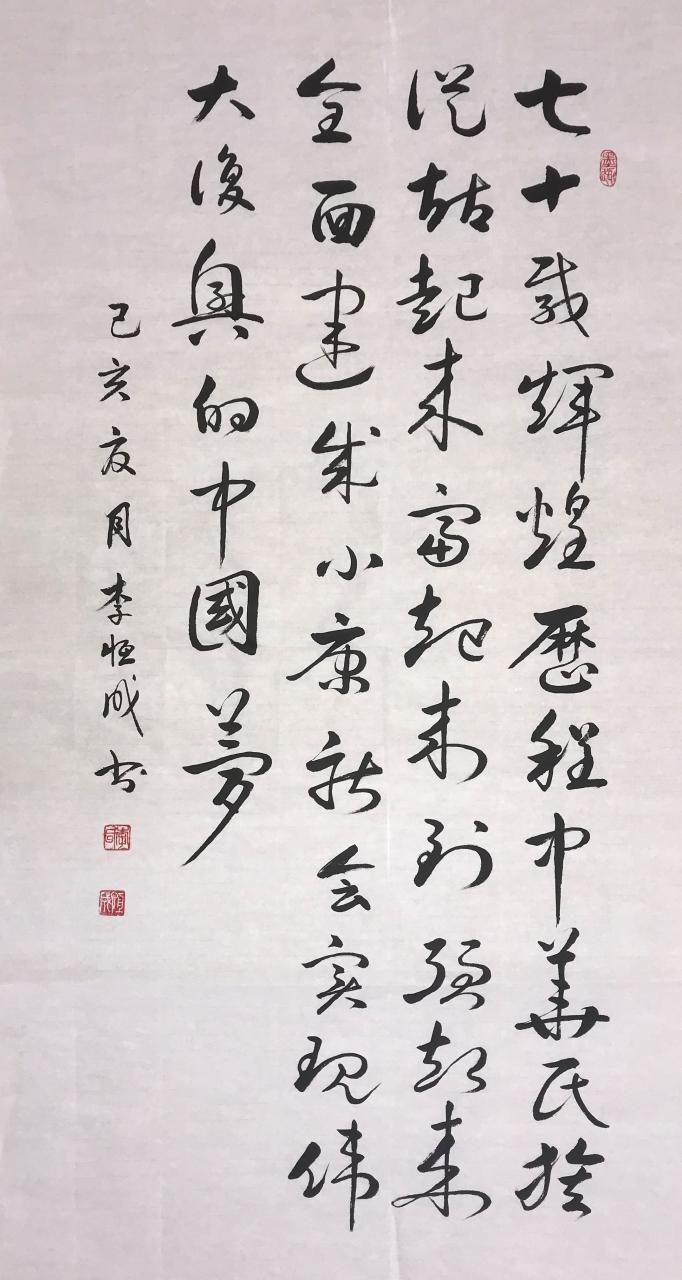 七十载輝煌歷程中華民族
從站起来富起来到强起来
全面建成小康社会实现伟
大復興的中國夢
己亥夏月李恒成书